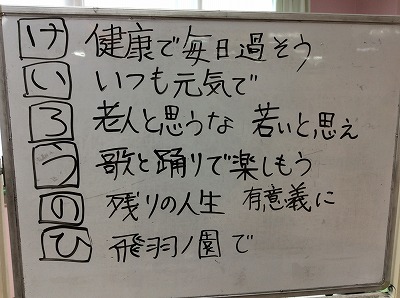 け 健康で毎日過そう
い いつも元気で
ろ 老人と思うな 若いと思え
う 歌と踊りで楽しもう
の 残りの人生 有意義に
ひ 飛羽ノ園で